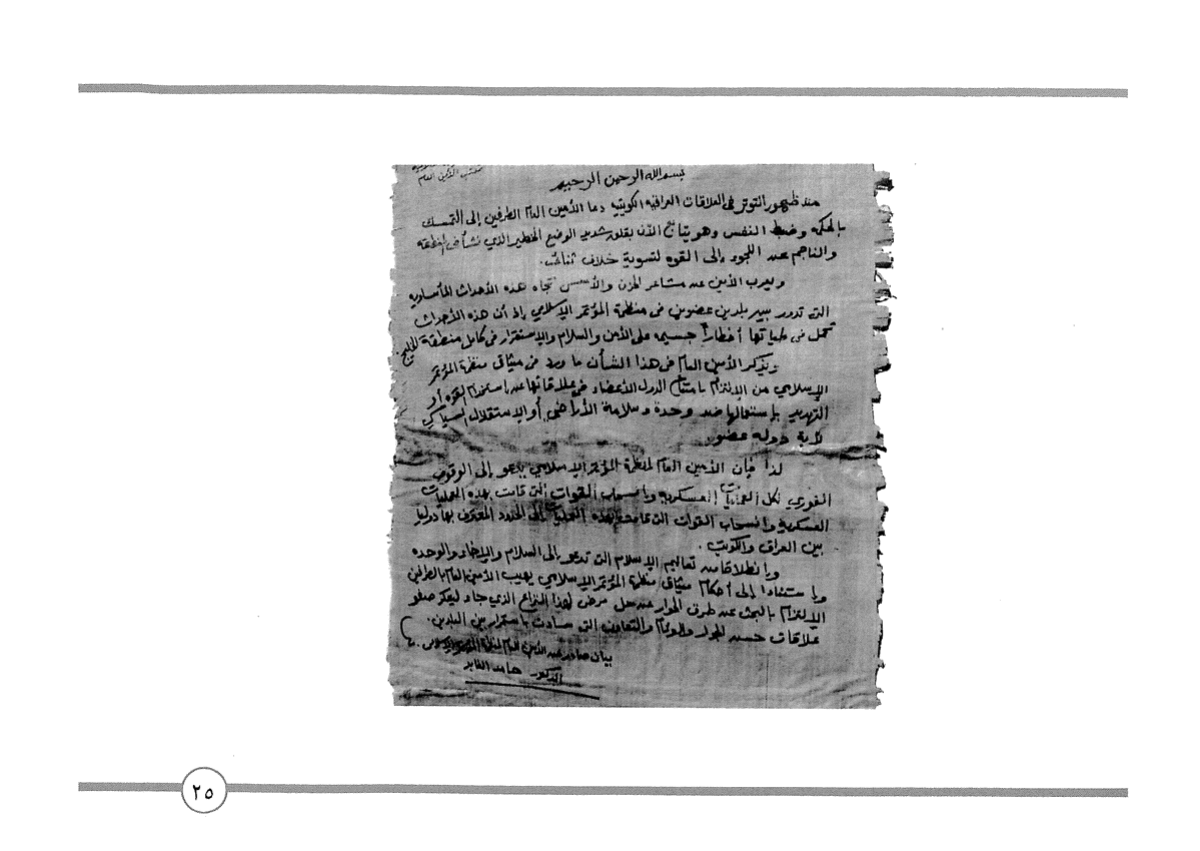 مكتب الأمين العام
بسم الله الرحمن الرحيم
منذ ظهور التوتر في العلاقات العراقية الكويتية دعا الأمين العام الطرفين إلى التمسك
بالحكمه وضبط النفس وهو يتابع الآن بقلق شديد الوضع الخطير الذي نشأ في المنطقة
والناجم عن اللجوء إلى القوه لتسوية خلاف ثنائى.
ويعرب الأمين عن مشاعر الحزن والأسى تجاه هذه الأحداث المأساويه
التي تدور بين بلدين عضوين في منظمة المؤتمر الإسلامي إذ أن هذه الأحداث
تحمل في طياتها أخطاراً جسيمه على الأمن والسلام والإستقرار في كامل منطقة الخليج
ويذكر الأمين العام في هذا الشأن ما ورد في ميثاق منظمة المؤتمر
الإسلامي من الإلتزام بامتناع الدول الأعضاء في علاقاتها عن إستخدام القوه أو
التهديد بإستعمالها ضد وحدة وسلامة الأراضي أو الإستقلال السياسي
لأية دوله عضو.
لذا فإن الأمين العام لمنظمة المؤتمر الإسلامي يدعو إلى الوقوف
الفوري لكل العمليات العسكرية وبانسحاب القوات التي قامت بهذه العمليات
العسكرية وانسحاب القوات التي قامت بهذه العمليات إلى الحدود المعترف بها دوليا
بين العراق والكويت.
وبإنطلاقا من تعاليم الإسلام التي تدعو إلى السلام والإخاء والوحده
وبإستنادا إلى أحكام ميثاق منظمة المؤتمر الإسلامي يهيب الأمين العام بالطرفين
الإلتزام بالبحث عن طرق الحوار عن حل مرض لهذا النزاع الذي جاء ليعكر صفو
علاقات حسن الجوار والوئام والتعاون التي سادت باستمرار بين البلدين.
بيان صادر عن الأمين العام لمنظمة المؤتمر الإسلامي
الدكتور حامد الغابد
٢٥